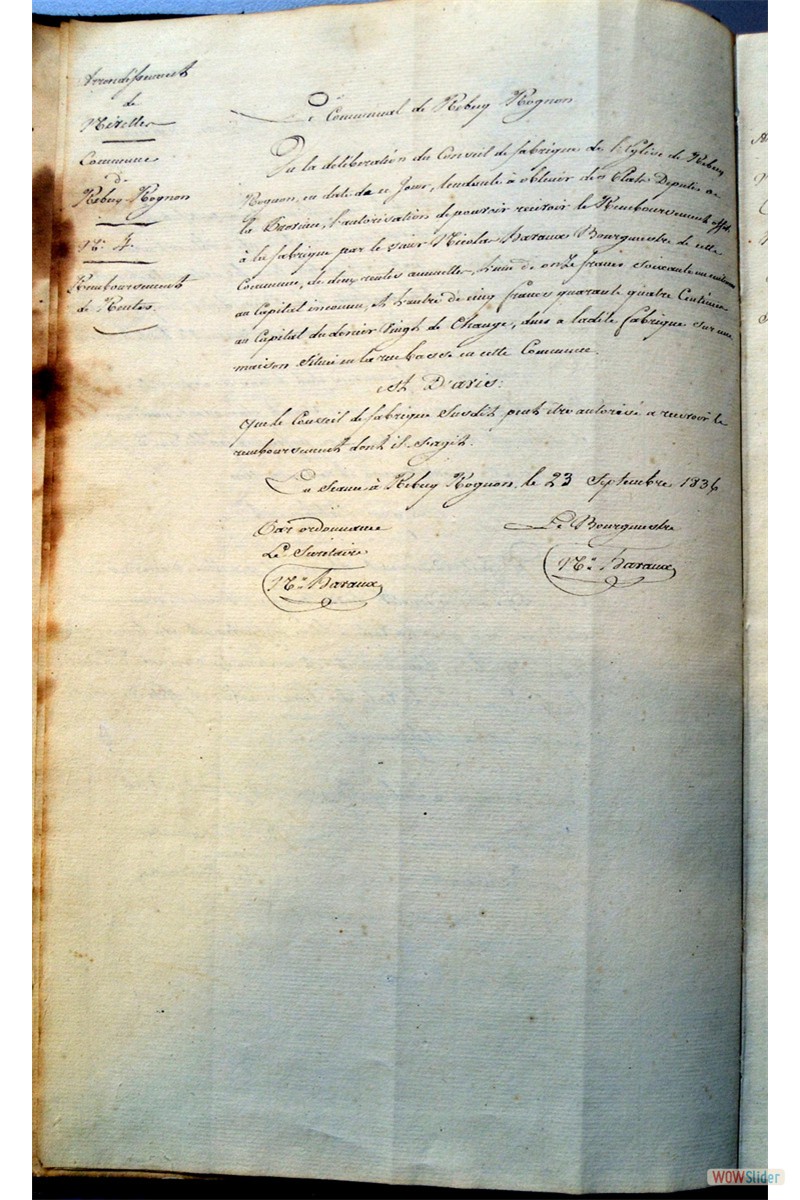 Arrondissement
de
Nivelles
Commune
de
Rebecq-Rognon
N.° 4.
Remboursement
de Rentes.
Le Communal de Rebecq Rognon
Vu la délibération du Conseil de fabrique de l'Eglise de Rebecq
Rognon, en date de ce Jour, tendante à obtenir des Etats Députés de
la Province, l'autorisation de pouvoir recevoir le Remboursement
à la fabrique par le sieur Nicolas Haraux Bourgmestre de cette
Commune, de deux rentes annuelles, l'une de onze francs soixante un centimes
au Capital inconnu, et l'autre de cinq francs quarante quatre Centimes
au Capital du denier Vingt de Change, dues a ladite fabrique sur une
maison située en la rue basse en cette Commune.
est D'avis:
que le Conseil de fabrique Susdit peut être autorisé a recevoir le
remboursement dont il s'agit.
En séance à Rebecq Rognon, le 23 Septembre 1836
Par ordonnance
Le Secrétaire
N.s Haraux
Le Bourgmestre
N.s Haraux
WOWSlider